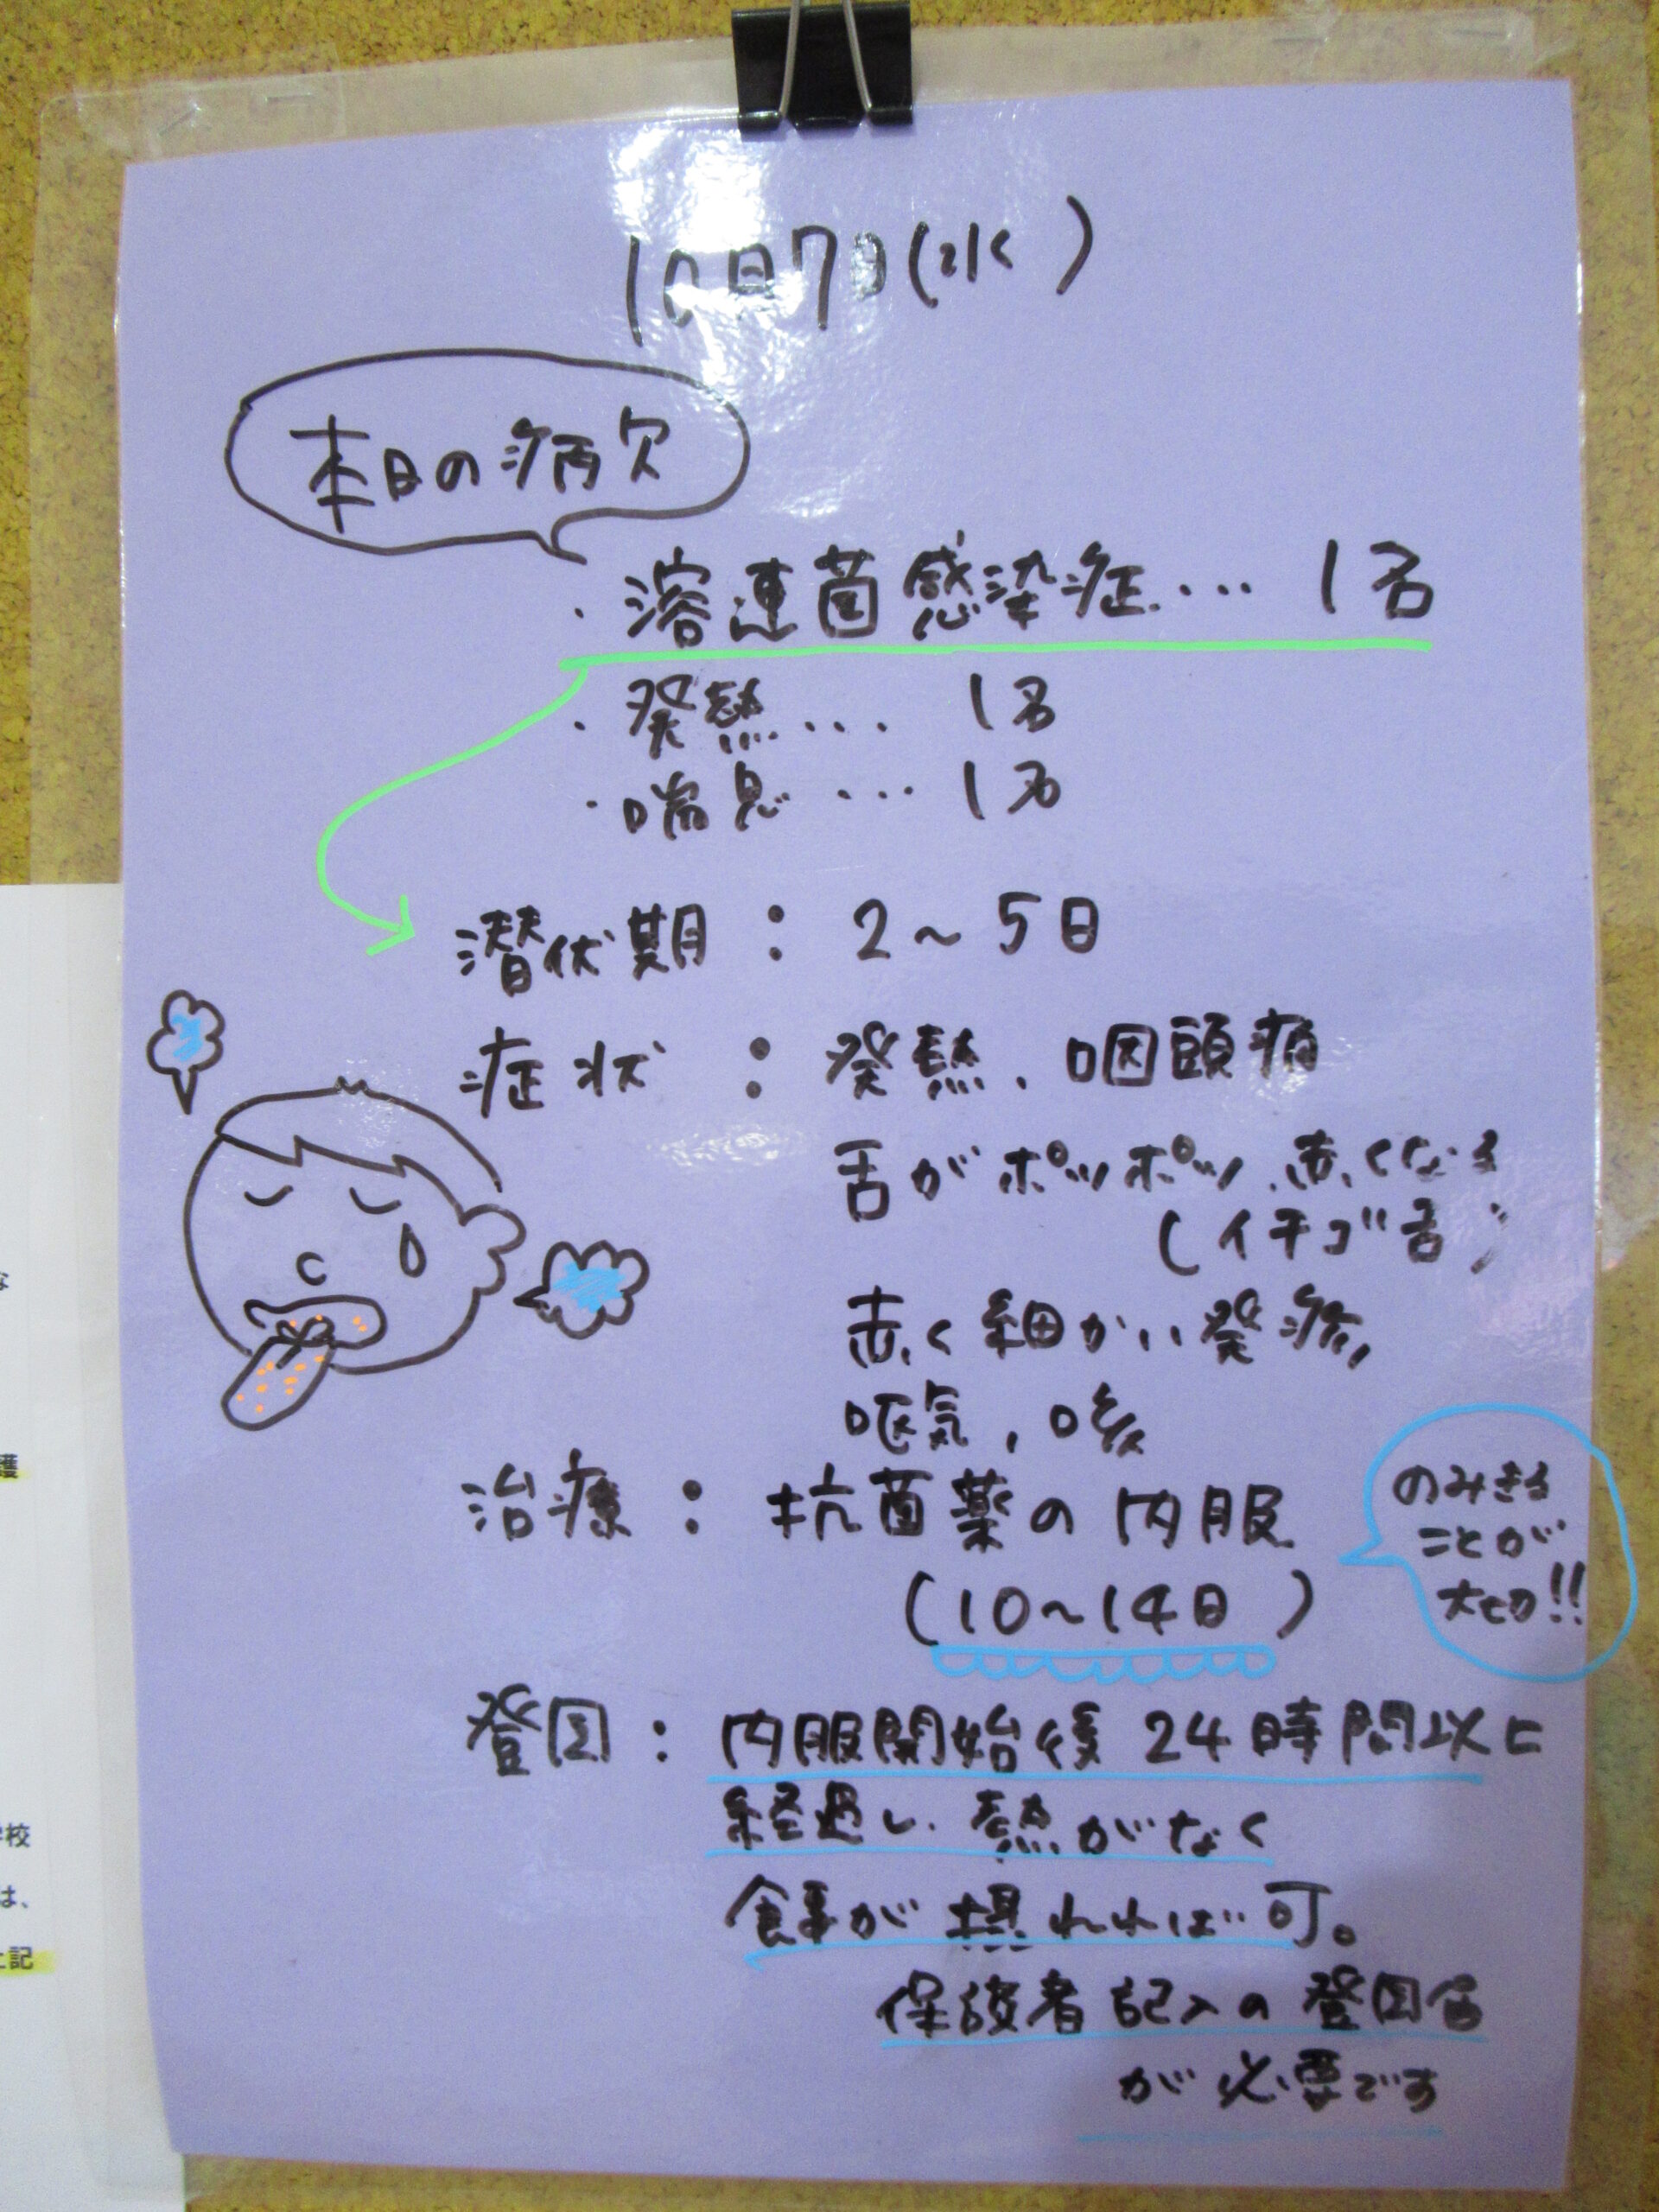 10月7日(水)
本日の病欠
・溶連菌感染症… 1名
・発熱… 1名
・喘息… 1名
潜伏期：2～5日
症状：発熱、咽頭痛
舌がポツポツ、赤くなる
(イチゴ舌)
赤く細かい発疹、
嘔気、咳
治療：抗菌薬の内服
(10～14日)
のみきる
ことが
大切!!
登園：内服開始後24時間以上
経過し、熱がなく
食事が摂れれば可。
保護者記入の登園届
が必要です
な
護
学校
は、
上記